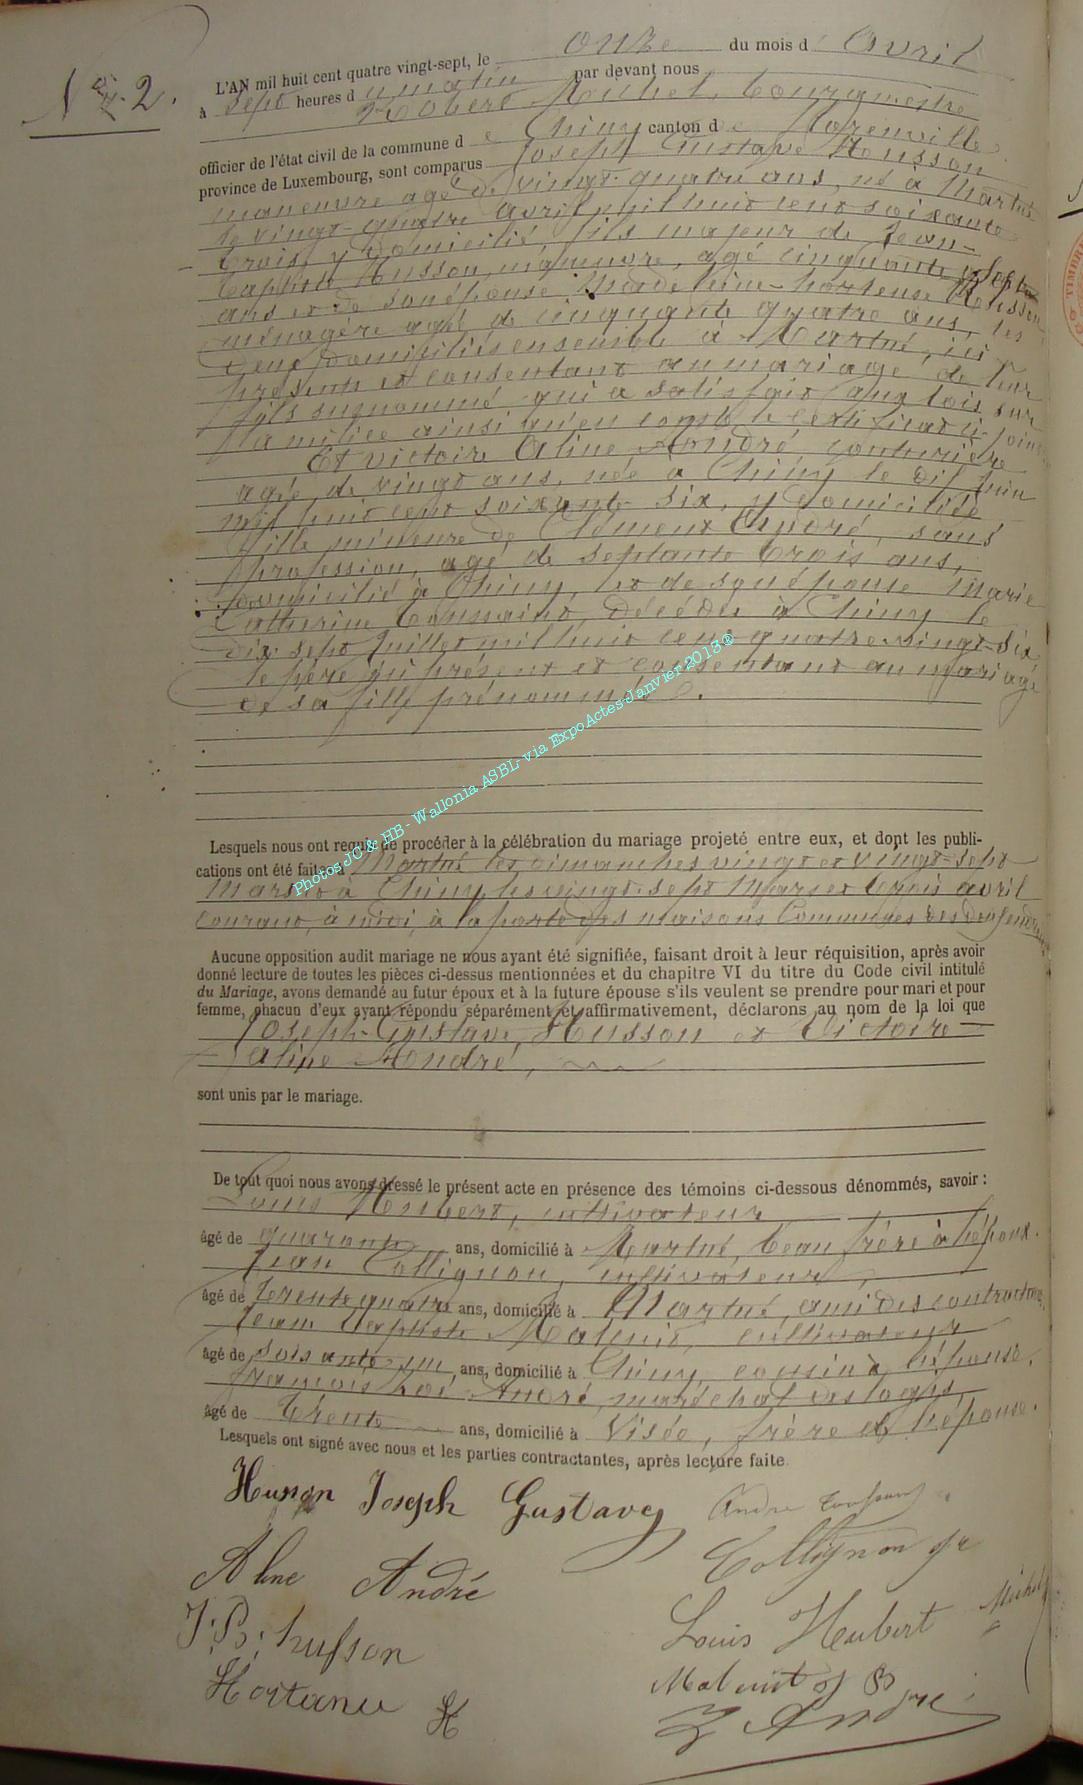 N° 2.
L'AN mil huit cent quatre vingt-sept, le onze du mois d'avril
à sept heures du matin par devant nous
Robert Michel, bourgmestre
officier de l'état civil de la commune de Chiny canton de Florenville
province de Luxembourg, sont comparus Joseph Gustave Husson
manœuvre agé de vingt-quatre ans, né à Martué
le vingt-quatre avril mil huit cent soixante
trois, y domicilié, fils majeur de Jean-
Baptiste Husson, manœuvre, agé cinquante sept
ans et de son épouse Madeleine-hortense
ménagère agée de cinquante quatre ans, les
deux domiciliés ensemble à Martué, ici
présents et consentant au mariage de leur
fils susnommé qui a satisfait aux lois sur
la milice ainsi qu'en conste le certificat ci-joint
Et victoire Aline André, couturière
agée de vingt ans, née à Chiny le dix juin
mil huit cent soixante six, y domiciliée
fille mineure de Clément André, sans
profession, agé de septante trois ans,
domicilié à Chiny, et de son épouse Marie
Catherine Toussaint, décédée à Chiny le
dix-sept juillet mil huit cent quatre-vingt-six
le père ici présent et consentant au mariage
de sa fille prénommée.
Lesquels nous ont requis de procéder à la célébration du mariage projeté entre eux, et dont les publi-
cations ont été faites à Martué les dimanches vingt et vingt-sept
Mars et à Chiny les vingt-sept Mars et trois avril
courant à midi, à la porte des maisons Communes
Aucune opposition audit mariage ne nous ayant été signifiée, faisant droit à leur réquisition, après avoir
donné lecture de toutes les pièces ci-dessus mentionnées et du chapitre VI du titre du Code civil intitulé
du Mariage, avons demandé au futur époux et à la future épouse s'ils veulent se prendre pour mari et pour
femme, chacun d'eux ayant répondu séparément et affirmativement, déclarons au nom de la loi que
Joseph-Gustave Husson et Victoire
aline André,
sont unis par le mariage.
De tout quoi nous avons dressé le présent acte en présence des témoins ci-dessous dénommés, savoir :
Louis Hubert, cultivateur
âgé de quarante ans, domicilié à Martué, beau frère à l'époux.
Jean Collignon, cultivateur,
âgé de trente quatre ans, domicilié à Martué, ami des contractants
Jean Baptiste cultivateur
âgé de soixante-un ans, domicilié à Chiny, cousin à l'épouse.
François André, maréchal des logis,
âgé de trente ans, domicilié à Visée, frère à l'épouse.
Lesquels ont signé avec nous et les parties contractantes, après lecture faite.
Husson Joseph Gustave
Aline André
Collignon
J. B. husson
Louis Hubert
Michel
André
Photos JC & HB - Wallonia ASBL via ExpoActes Janvier 2013 ®
TIMBRE